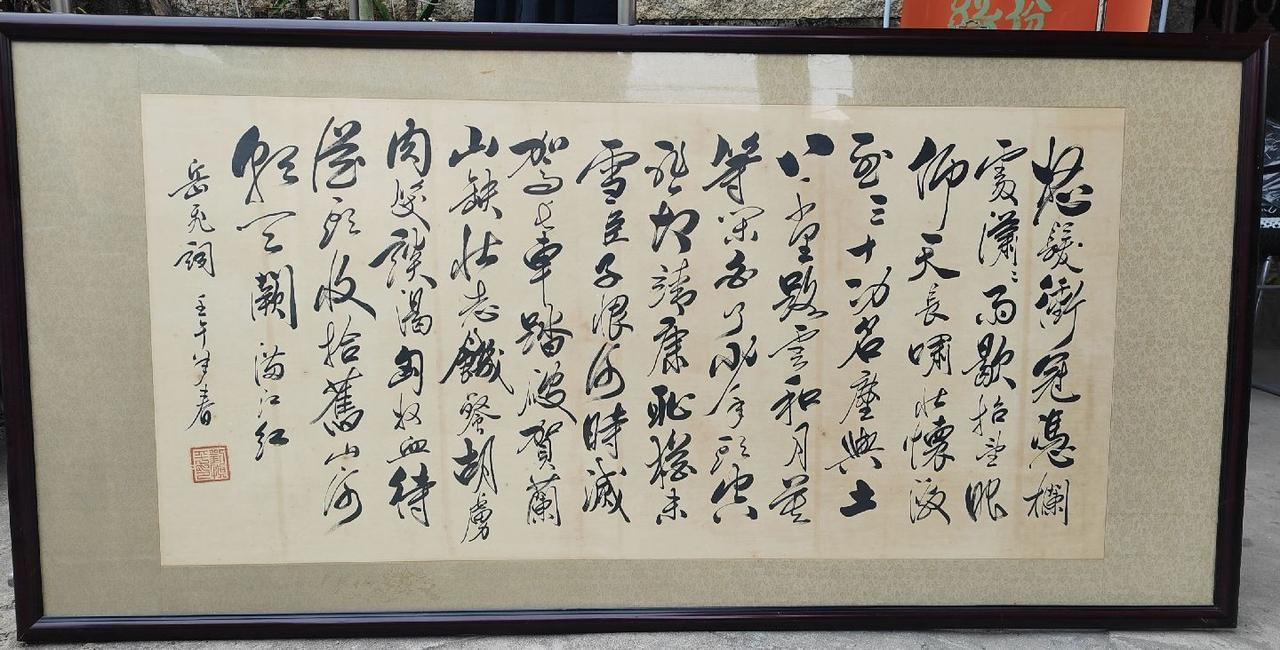 怒髮衝冠憑欄
處瀟々雨歇抬望眼
仰天長嘯壯懷激
烈三十功名塵與土
八千里路雲和月莫
等閒白了少年頭空
悲切靖康恥猶未
雪臣子恨何時滅
駕長車踏破賀蘭
山缺壯志饑餐胡虜
肉笑談渴匈奴血待
從頭收拾舊山河
朝天闕 滿江紅
岳飛詞 壬午年春